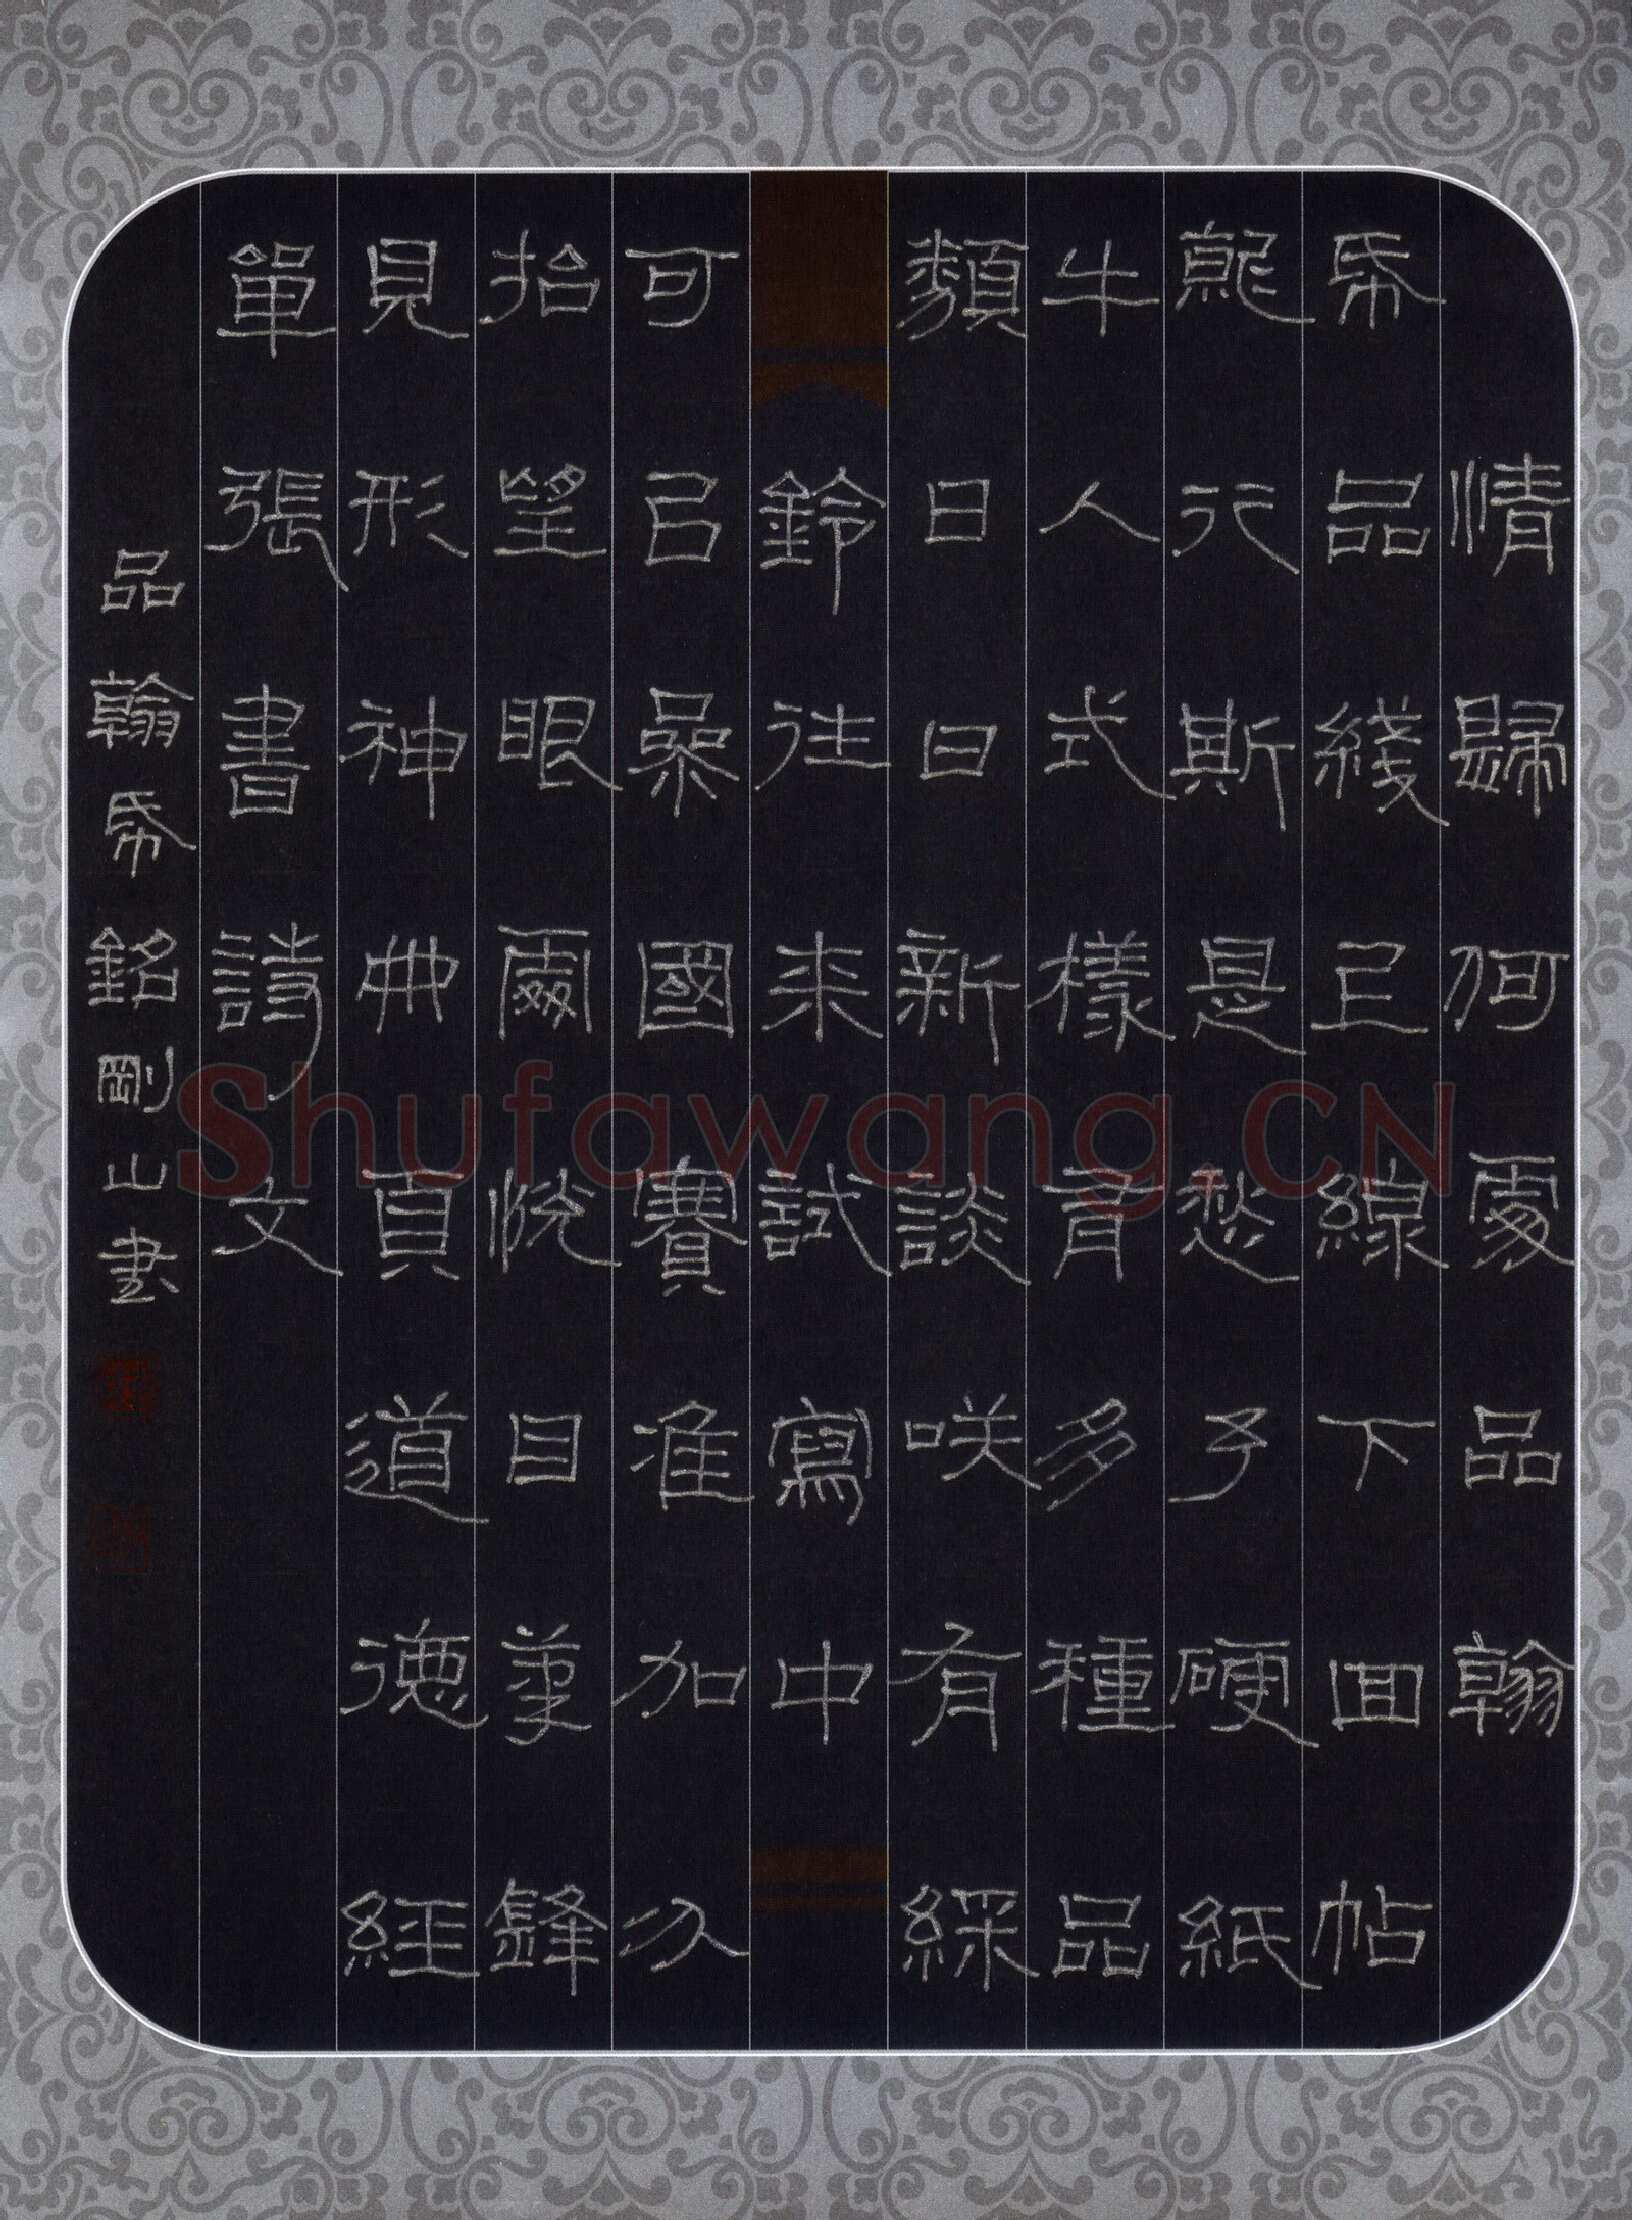 情歸何處品翰
帋品綫上線下回帖
行斯是愁予硬紙
牛人式樣有多種品
類日日新談咲有綵
鈴往来試寫中
可㠯國賽准加分
抬望眼爾悅目筆鋒
見形神典頁道德經
單張書詩文
品翰帋銘剛山書
Shufawang.CN